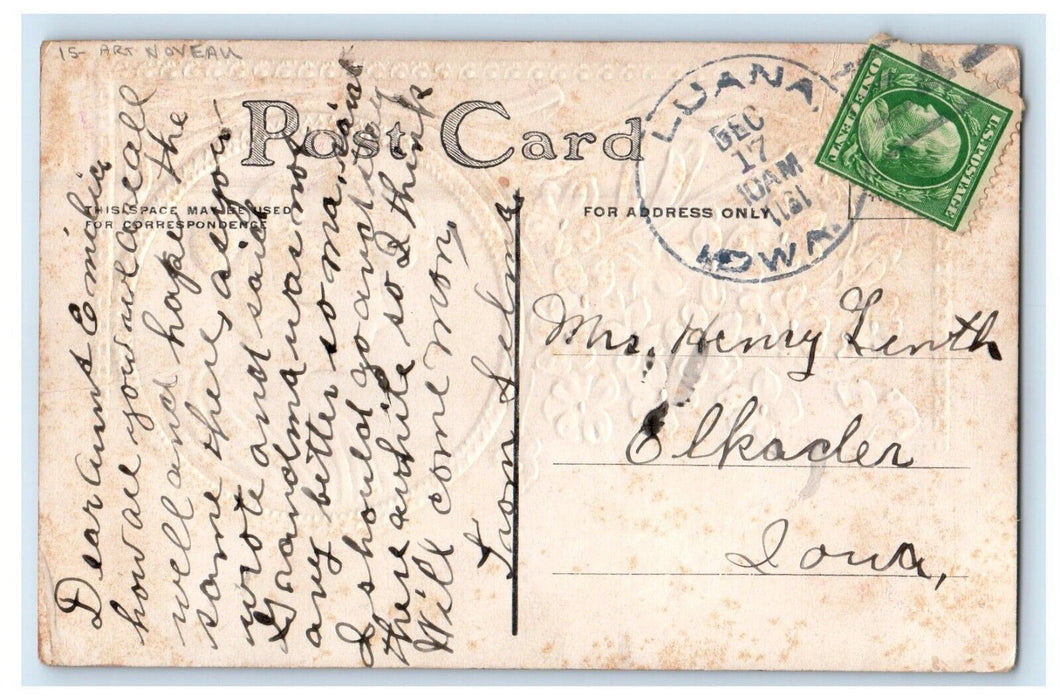 15- ART NOVEAU
POST CARD
THIS SPACE MAY BE USED
FOR CORRESPONDENCE
FOR ADDRESS ONLY
LUANA
DEC
17
10AM
1911
IOWA.
ONE CENT
U.S. POSTAGE
Dear Aunt Emilia
how are you we are all
well and hope the
same there, as you
wrote and said
Grandma was not
any better so mama said
I should go and stay
there awhile so I think
Will come Mon.
From Selma,
Mrs, Henry Lenth
Elkader
Iowa,